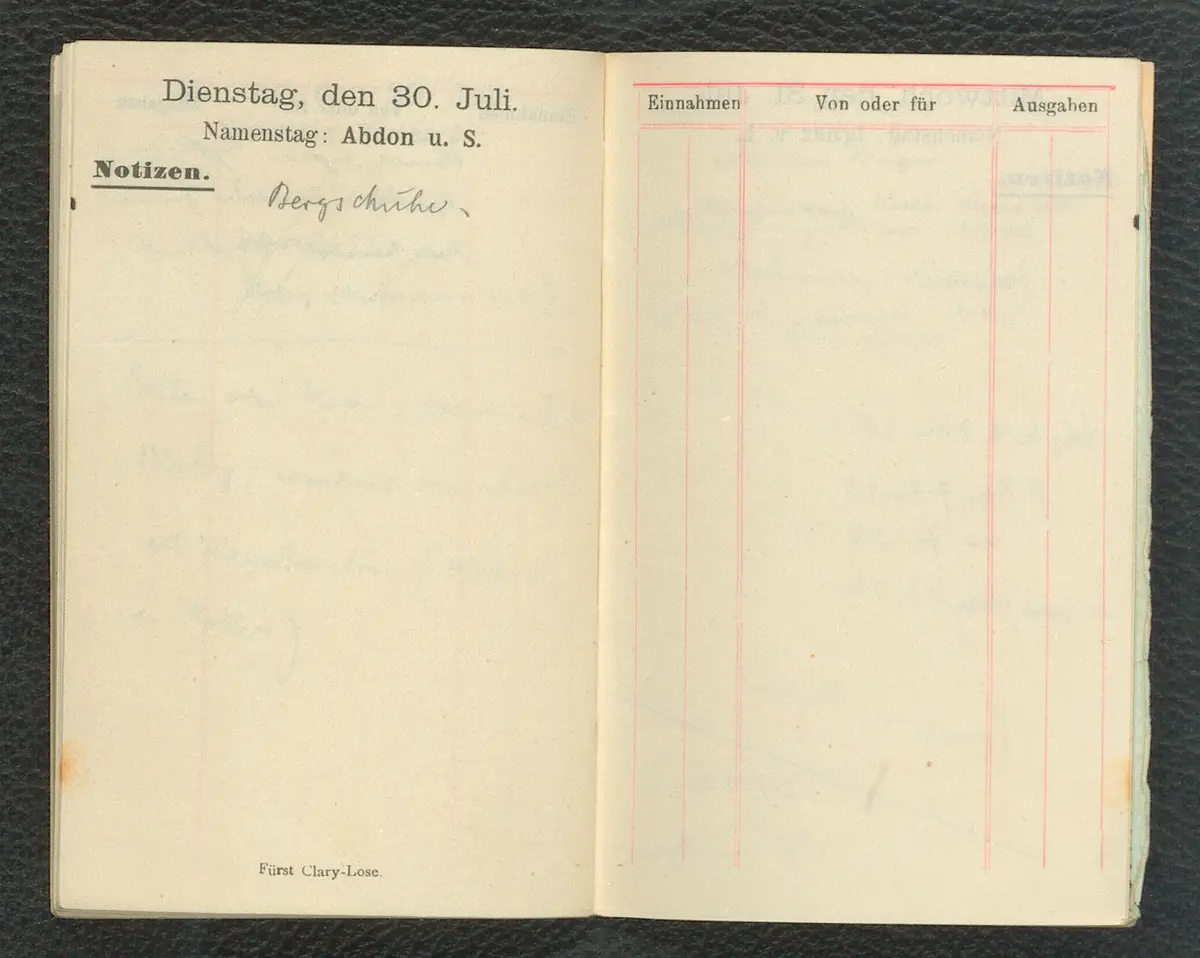 Dienstag, den 30. Juli.
Namenstag: Abdon u. S.
Notizen.
Bergschuhe
Fürst Clary-Lose.
Einnahmen Von oder für Ausgaben